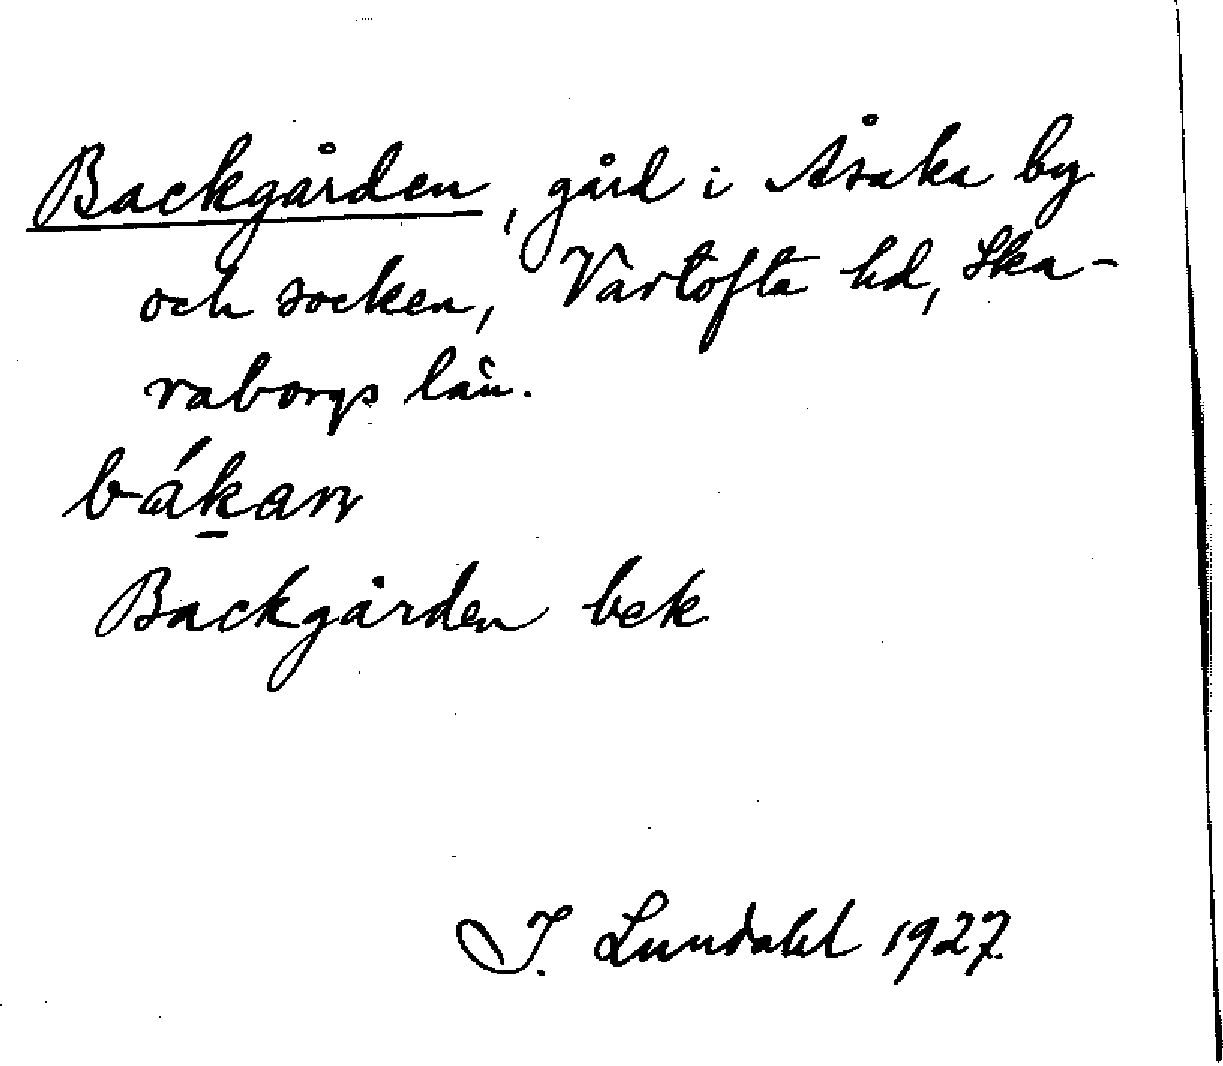 Backgården, gård i Åsaka by
och socken, Vartofta hd, Ska-
raborgs län.
bák̲an
Backgården bek
I. Lundahl 1927.